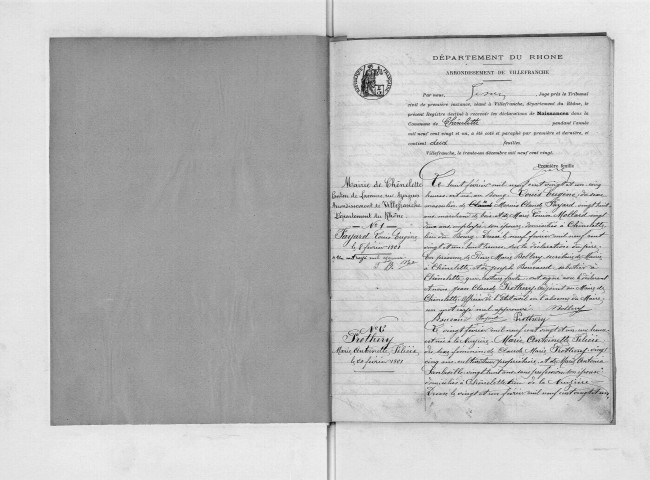 DÉPARTEMENT DU RHONE
ARRONDISSEMENT DE VILLEFRANCHE
Par nous, Juge près le Tribunal
civil de première instance, séant à Villefranche, département du Rhône, le
présent Registre destiné à recevoir les déclarations de Naissances dans la
Commune de Chênelette pendant l'année
mil neuf cent vingt et un, a été coté et paraphé par première et dernière, et
contient deux feuilles.
Villefranche, le trente-un décembre mil neuf cent vingt.
Première feuille
Mairie de Chênelette
Arrondissement de Villefranche
Département du Rhône
N° 1
Fayard Louis Eugène
le 8 février 1921
Le huit février mil neuf cent vingt et un cinq
heures est né au Bourg Louis Eugène du sexe
masculin de Claude Marie Claude Fayard, vingt huit
ans marchand de bois et de Marie Louise Mollard vingt
deux ans employée son épouse domiciliés à Chênelette
lieu du Bourg. Dressé le neuf février mil neuf cent
vingt et un huit heures, sur la déclaration du père
En présence de Jean Marie secrétaire de Mairie
à Chênelette et de Joseph sabotier à
Chênelette, qui lecture faite ont signé avec le déclarant
et nous Jean Claude Prothery, adjoint au Maire de
Chênelette officier de l'État civil en l'absence du Maire,
un mot rayé nul approuvé
Fayard Prothery
N° 2
Prothery
Marie Antoinette Félicie
le 20 février 1921
Le vingt février mil neuf cent vingt et un une heure
est née à la Marie Antoinette Félicie
du sexe féminin de Claude Marie Prothery vingt
cinq ans cultivateur propriétaire et de Marie Antonia
vingt huit ans sans profession son épouse
domiciliés à Chênelette lieu de la
Dressé le vingt et un février mil neuf cent vingt et un